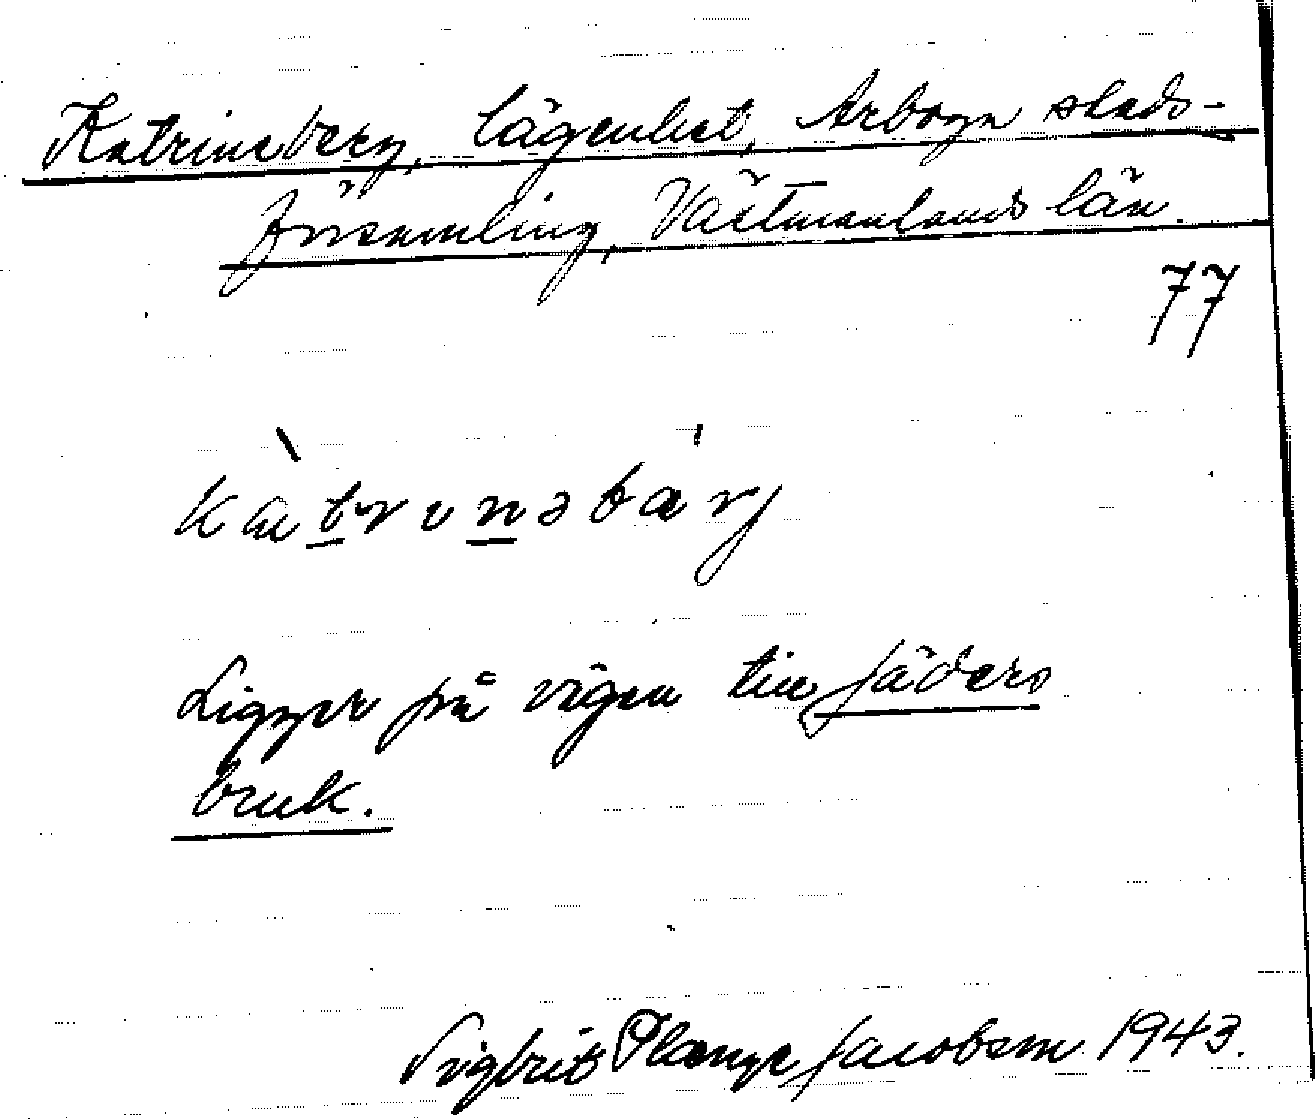 Katrineberg, lägenhet, Arboga stads-
församling, Västmanlands län.
77
kàtrinəbárj
Ligger på vägen till Jäders
bruk.
Sigbrit Plænge Jacobson 1943.